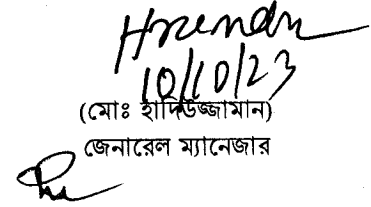 10/10/23
(মোঃ হাদিউজ্জামান)
জেনারেল ম্যানেজার